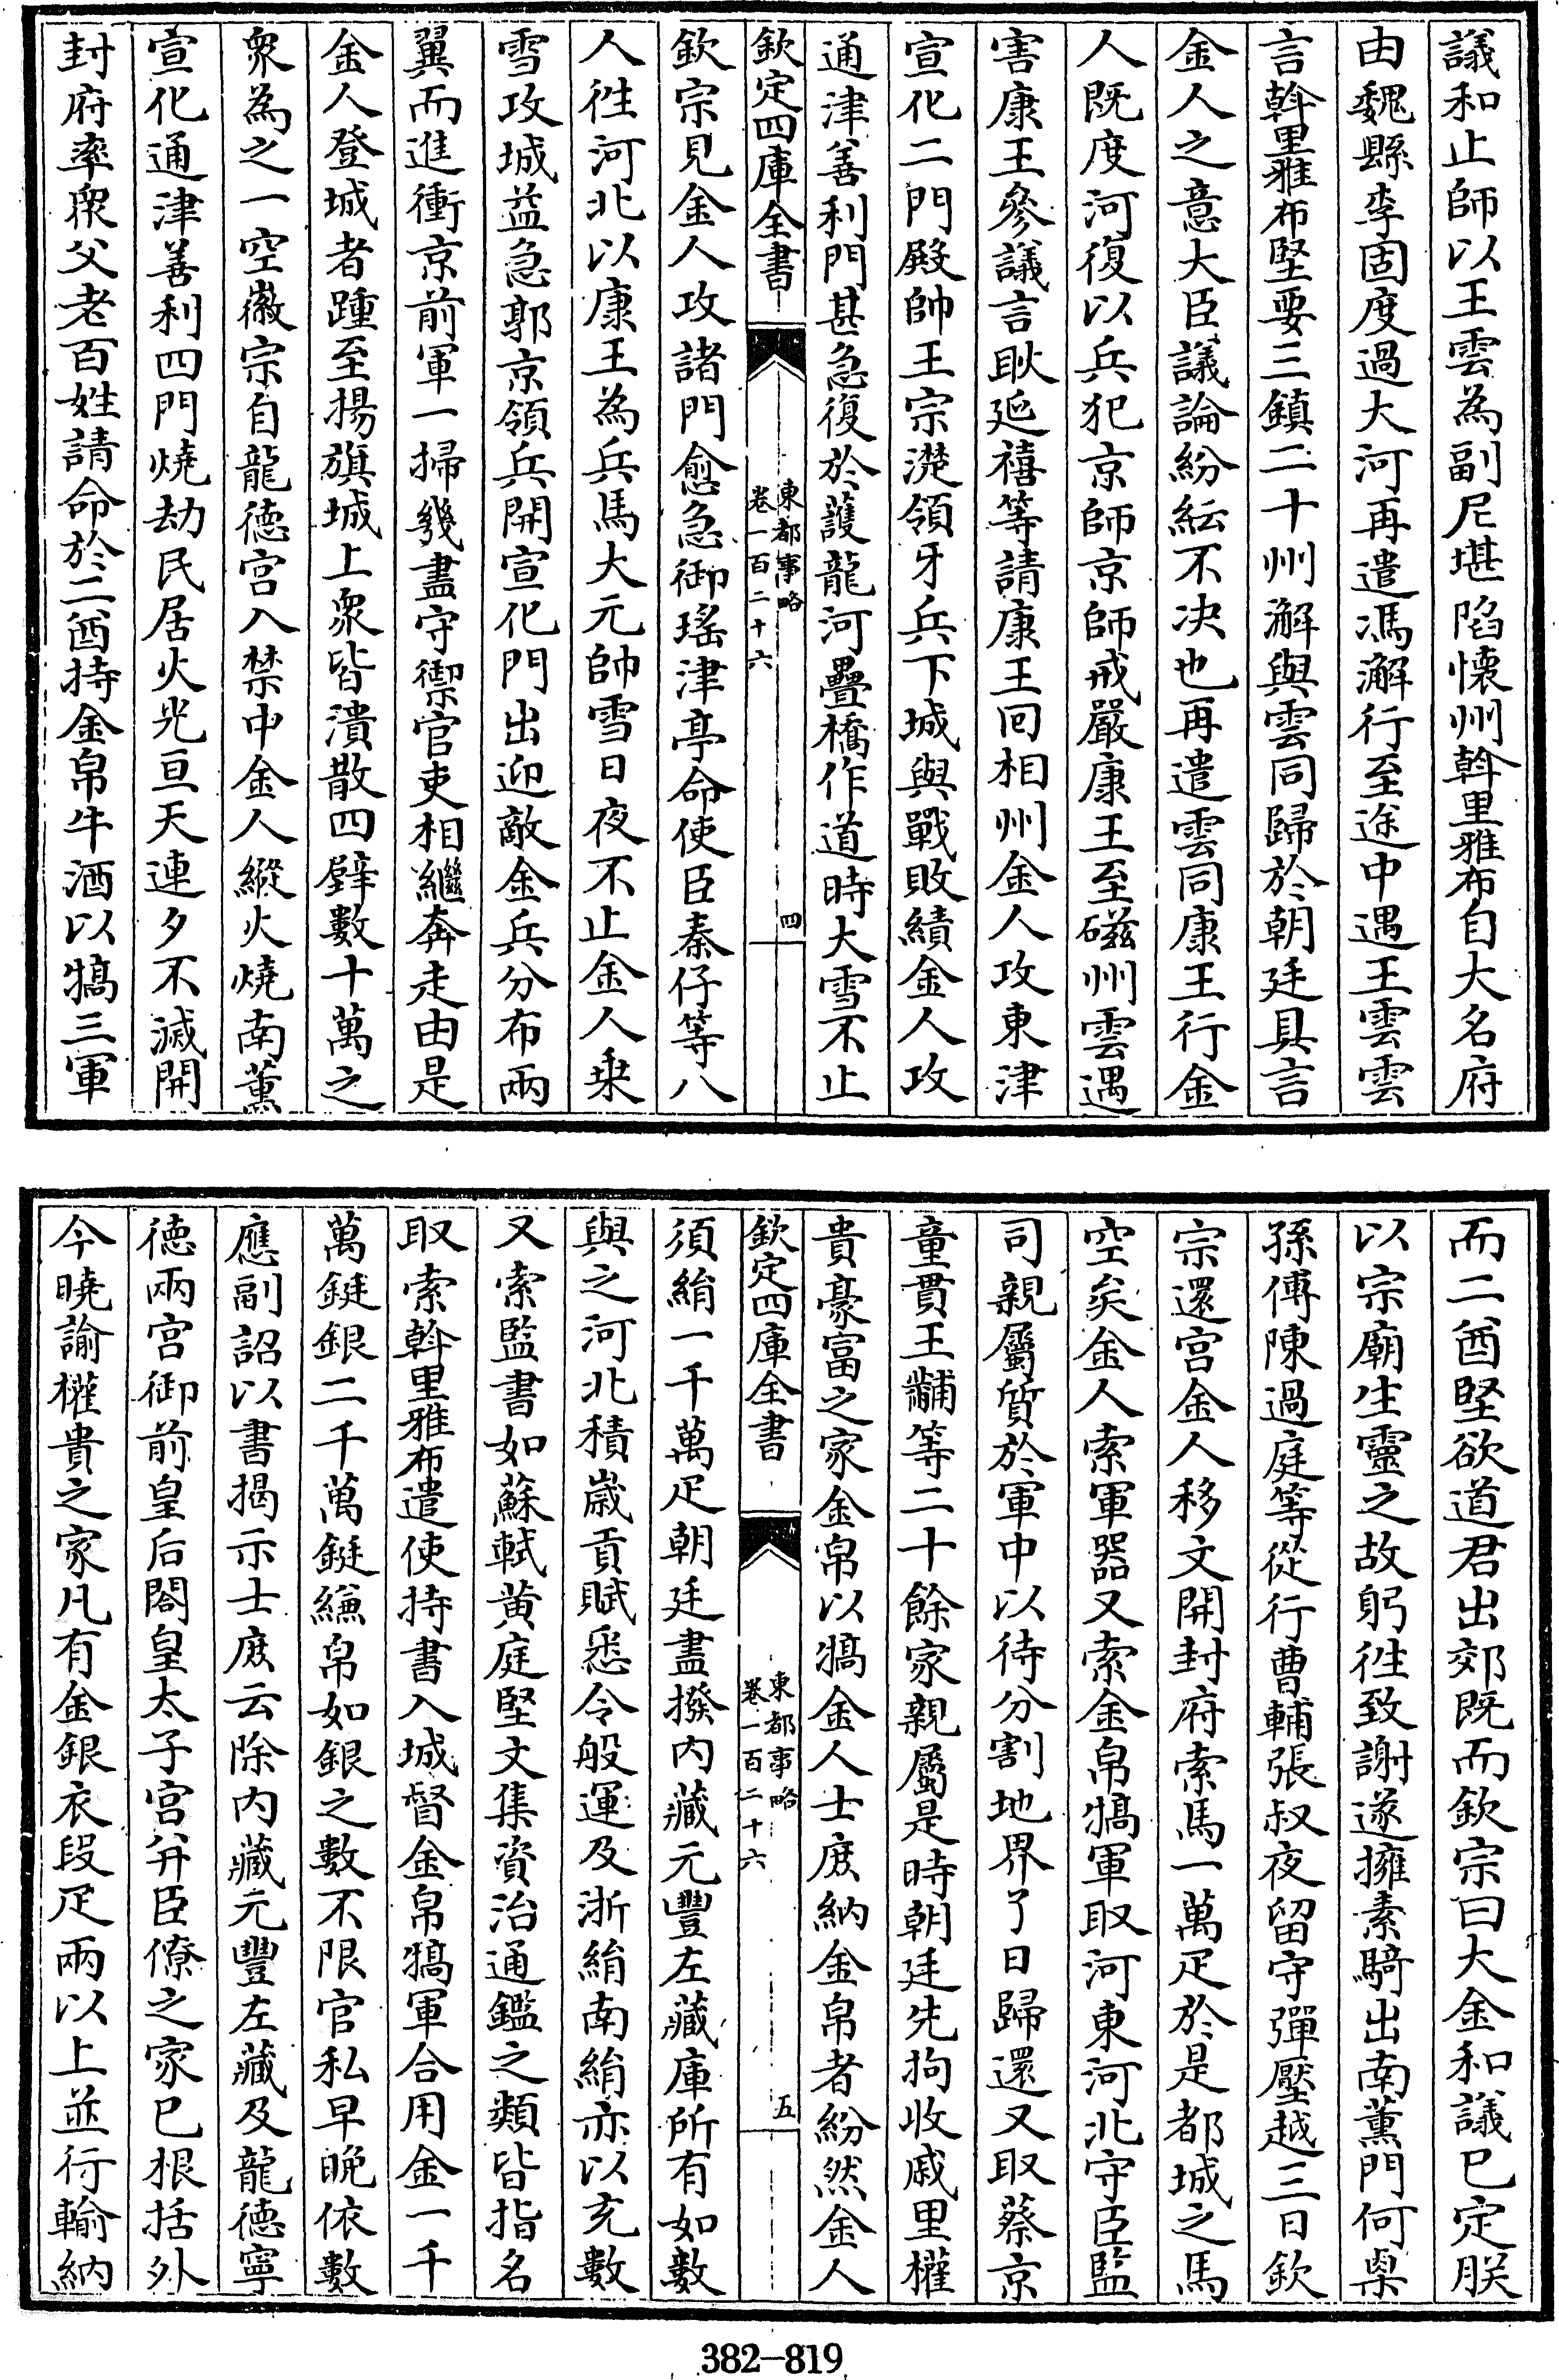 議和止師以王雲為副尼堪陷懷州斡里雅布自大名府
由魏縣李固度過大河再遣馮澥行至途中遇王雲雲
言斡里雅布堅要三鎮二十州澥與雲同歸於朝廷具言
金人之意大臣議論紛紜不决也再遣雲同康王行金
人既度河復以兵犯京師京師戒嚴康王至磁州雲遇
害康王參議言耿延禧等請康王回相州金人攻東津
宣化二門殿帥王宗濋領牙兵下城與戰敗績金人攻
通津善利門甚急復於䕶龍河疊橋作道時大雪不止
欽定四庫全書
東都事略
卷一百二十六
四
欽宗見金人攻諸門愈急御瑤津亭命使臣秦仔等八
人徃河北以康王為兵馬大元帥雪日夜不止金人乗
雪攻城益急郭京領兵開宣化門出迎敵金兵分布兩
翼而進衝京前軍一掃幾盡守禦官吏相繼奔走由是
金人登城者踵至揚旗城上衆皆潰散四壁數十萬之
衆為之一空徽宗自龍德宫入禁中金人縱火燒南薰
宣化通津善利四門燒劫民居火光亘天連夕不滅開
封府率衆父老百姓請命於二酋持金帛牛酒以犒三軍
而二酋堅欲道君出郊既而欽宗曰大金和議已定朕
以宗廟生靈之故躬徃致謝遂擁素騎出南薰門何㮚
孫傅陳過庭等從行曹輔張叔夜留守彈壓越三日欽
宗還宫金人移文開封府索馬一萬疋於是都城之馬
空矣金人索軍器又索金帛犒軍取河東河北守臣監
司親屬質於軍中以待分割地界了日歸還又取蔡京
童貫王黼等二十餘家親屬是時朝廷先拘收戚里權
貴豪富之家金帛以犒金人士庶納金帛者紛然金人
欽定四庫全書
東都事略
卷一百二十六
五
須絹一千萬疋朝廷盡撥内藏元豐左藏庫所有如數
與之河北積歲貢賦悉令般運及浙絹南絹亦以充數
又索監書如蘇軾黄庭堅文集資治通鑑之類皆指名
取索斡里雅布遣使持書入城督金帛犒軍合用金一千
萬鋌銀二千萬鋌縑帛如銀之數不限官私早晚依數
應副詔以書揭示士庶云除内藏元豐左藏及龍德寧
德兩宫御前皇后閤皇太子宫并臣僚之家已根括外
今曉諭權貴之家凡有金銀衣段疋兩以上並行輸納
382-819